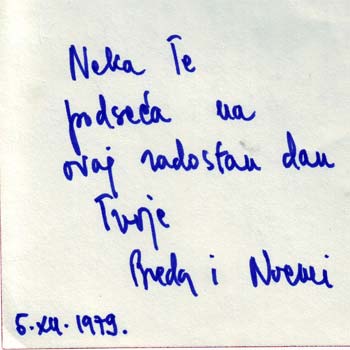 Neka Te
podseća na
ovaj radostan dan
Tvoje
Breda i Noemi
5.XII.1979.